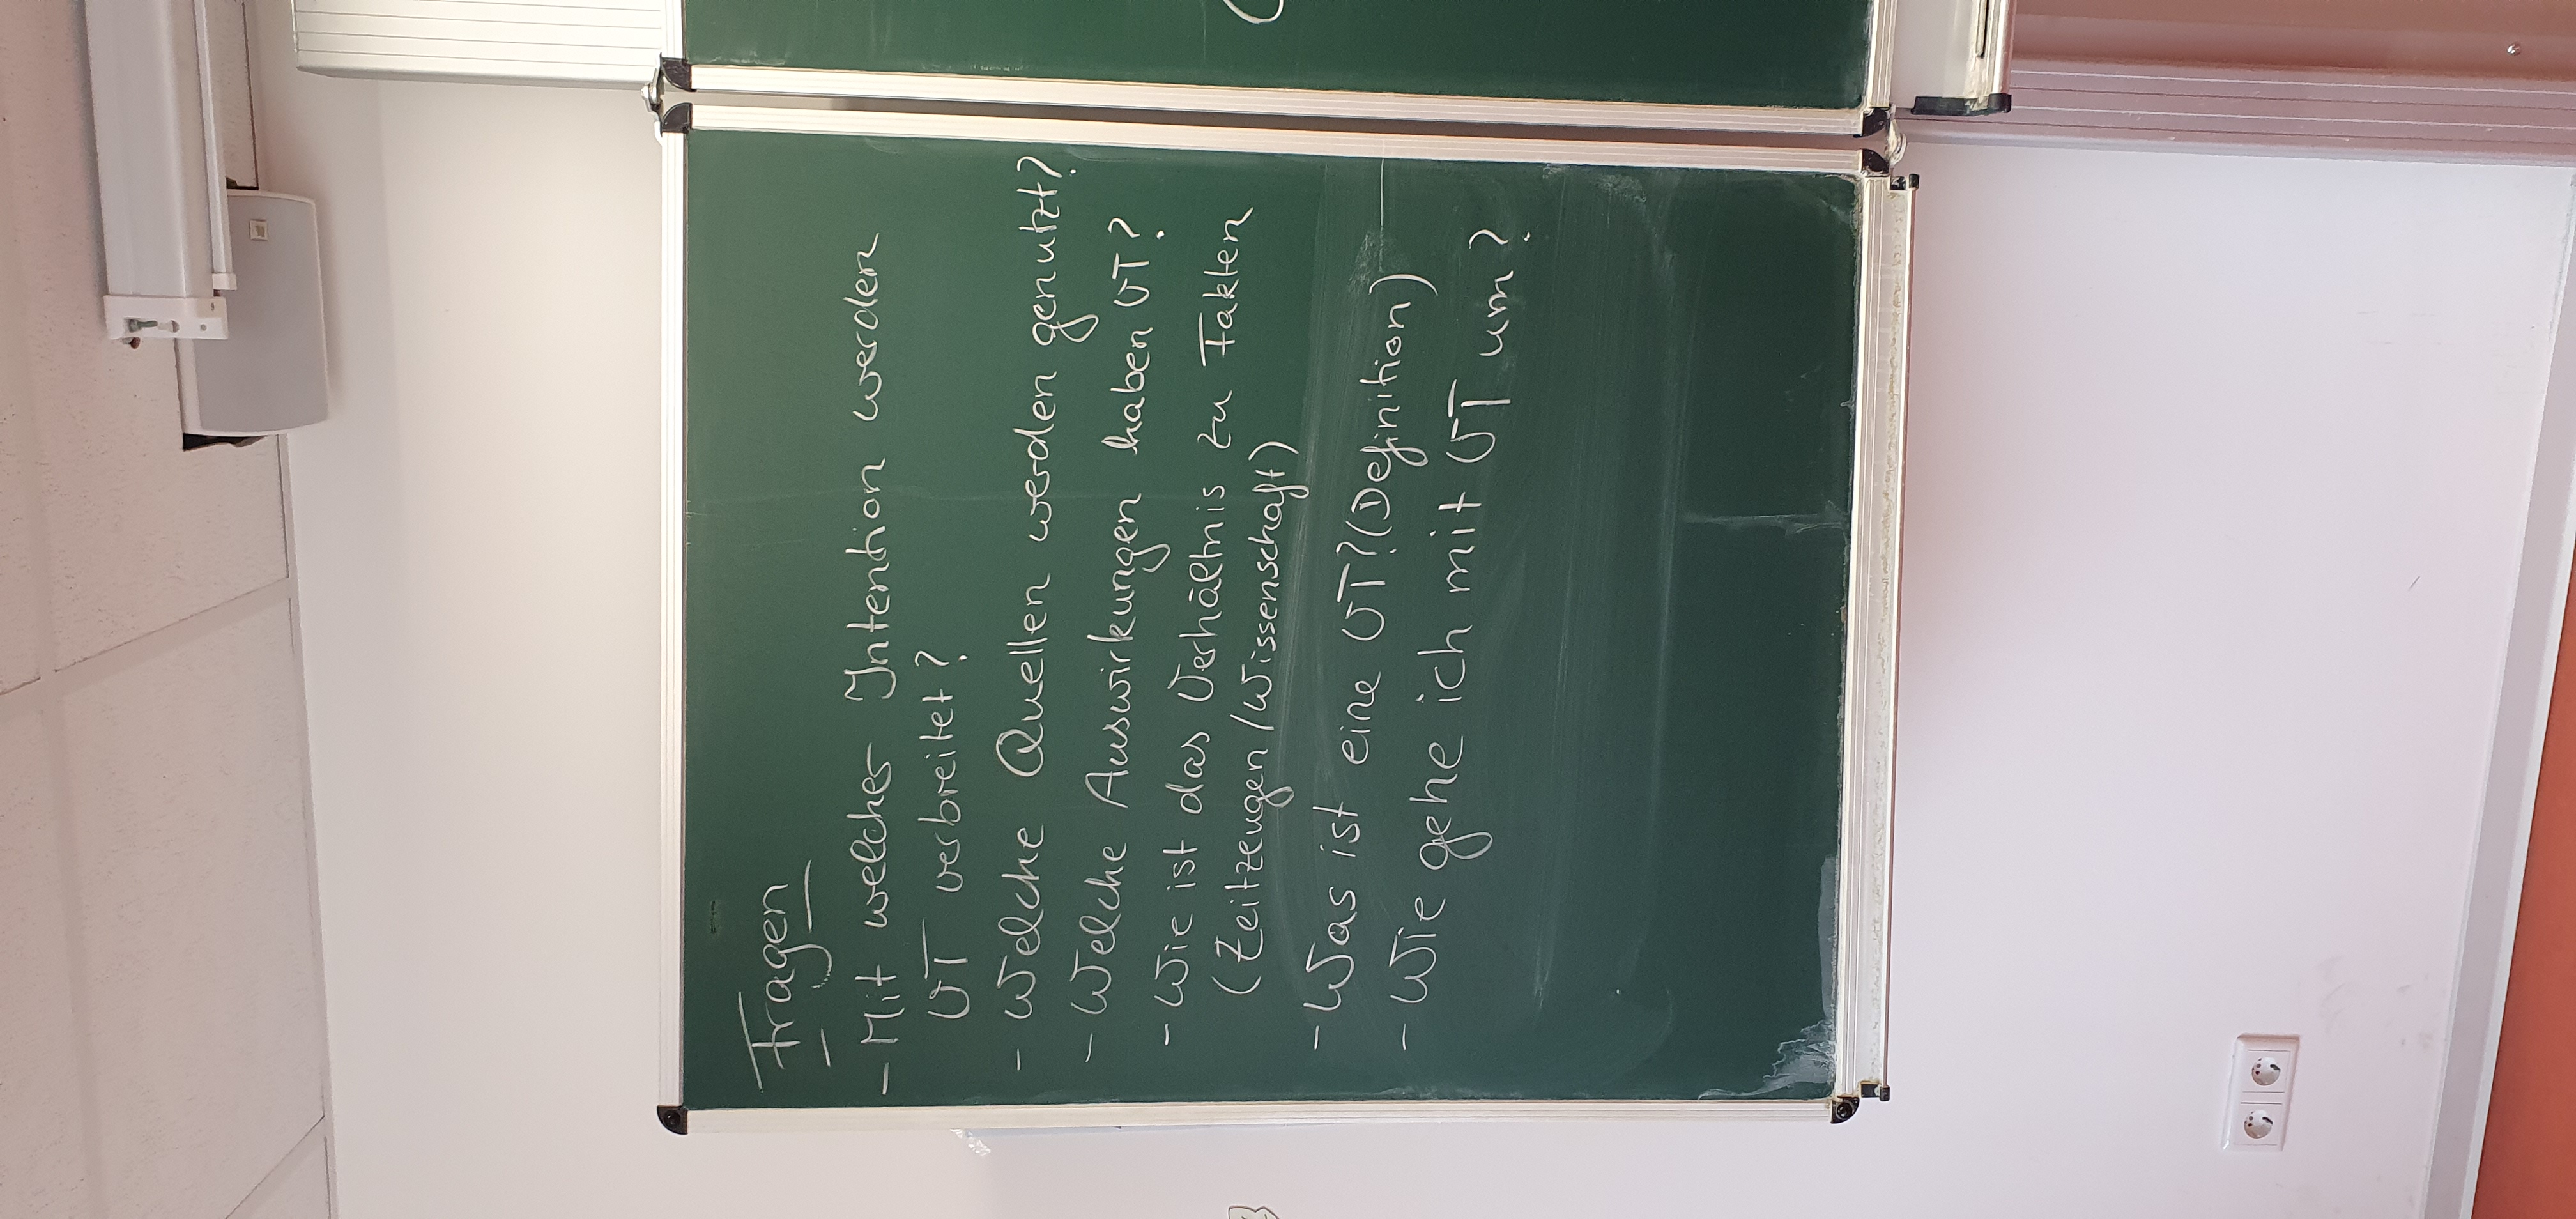 Fragen
- Mit welcher Intention werden
VT verbreitet?
- Welche Quellen werden genutzt?
- Welche Auswirkungen haben VT?
- Wie ist das Verhältnis zu Fakten
(Zeitzeugen/Wissenschaft)
- Was ist eine VT? (Definition)
- Wie gehe ich mit VT um?